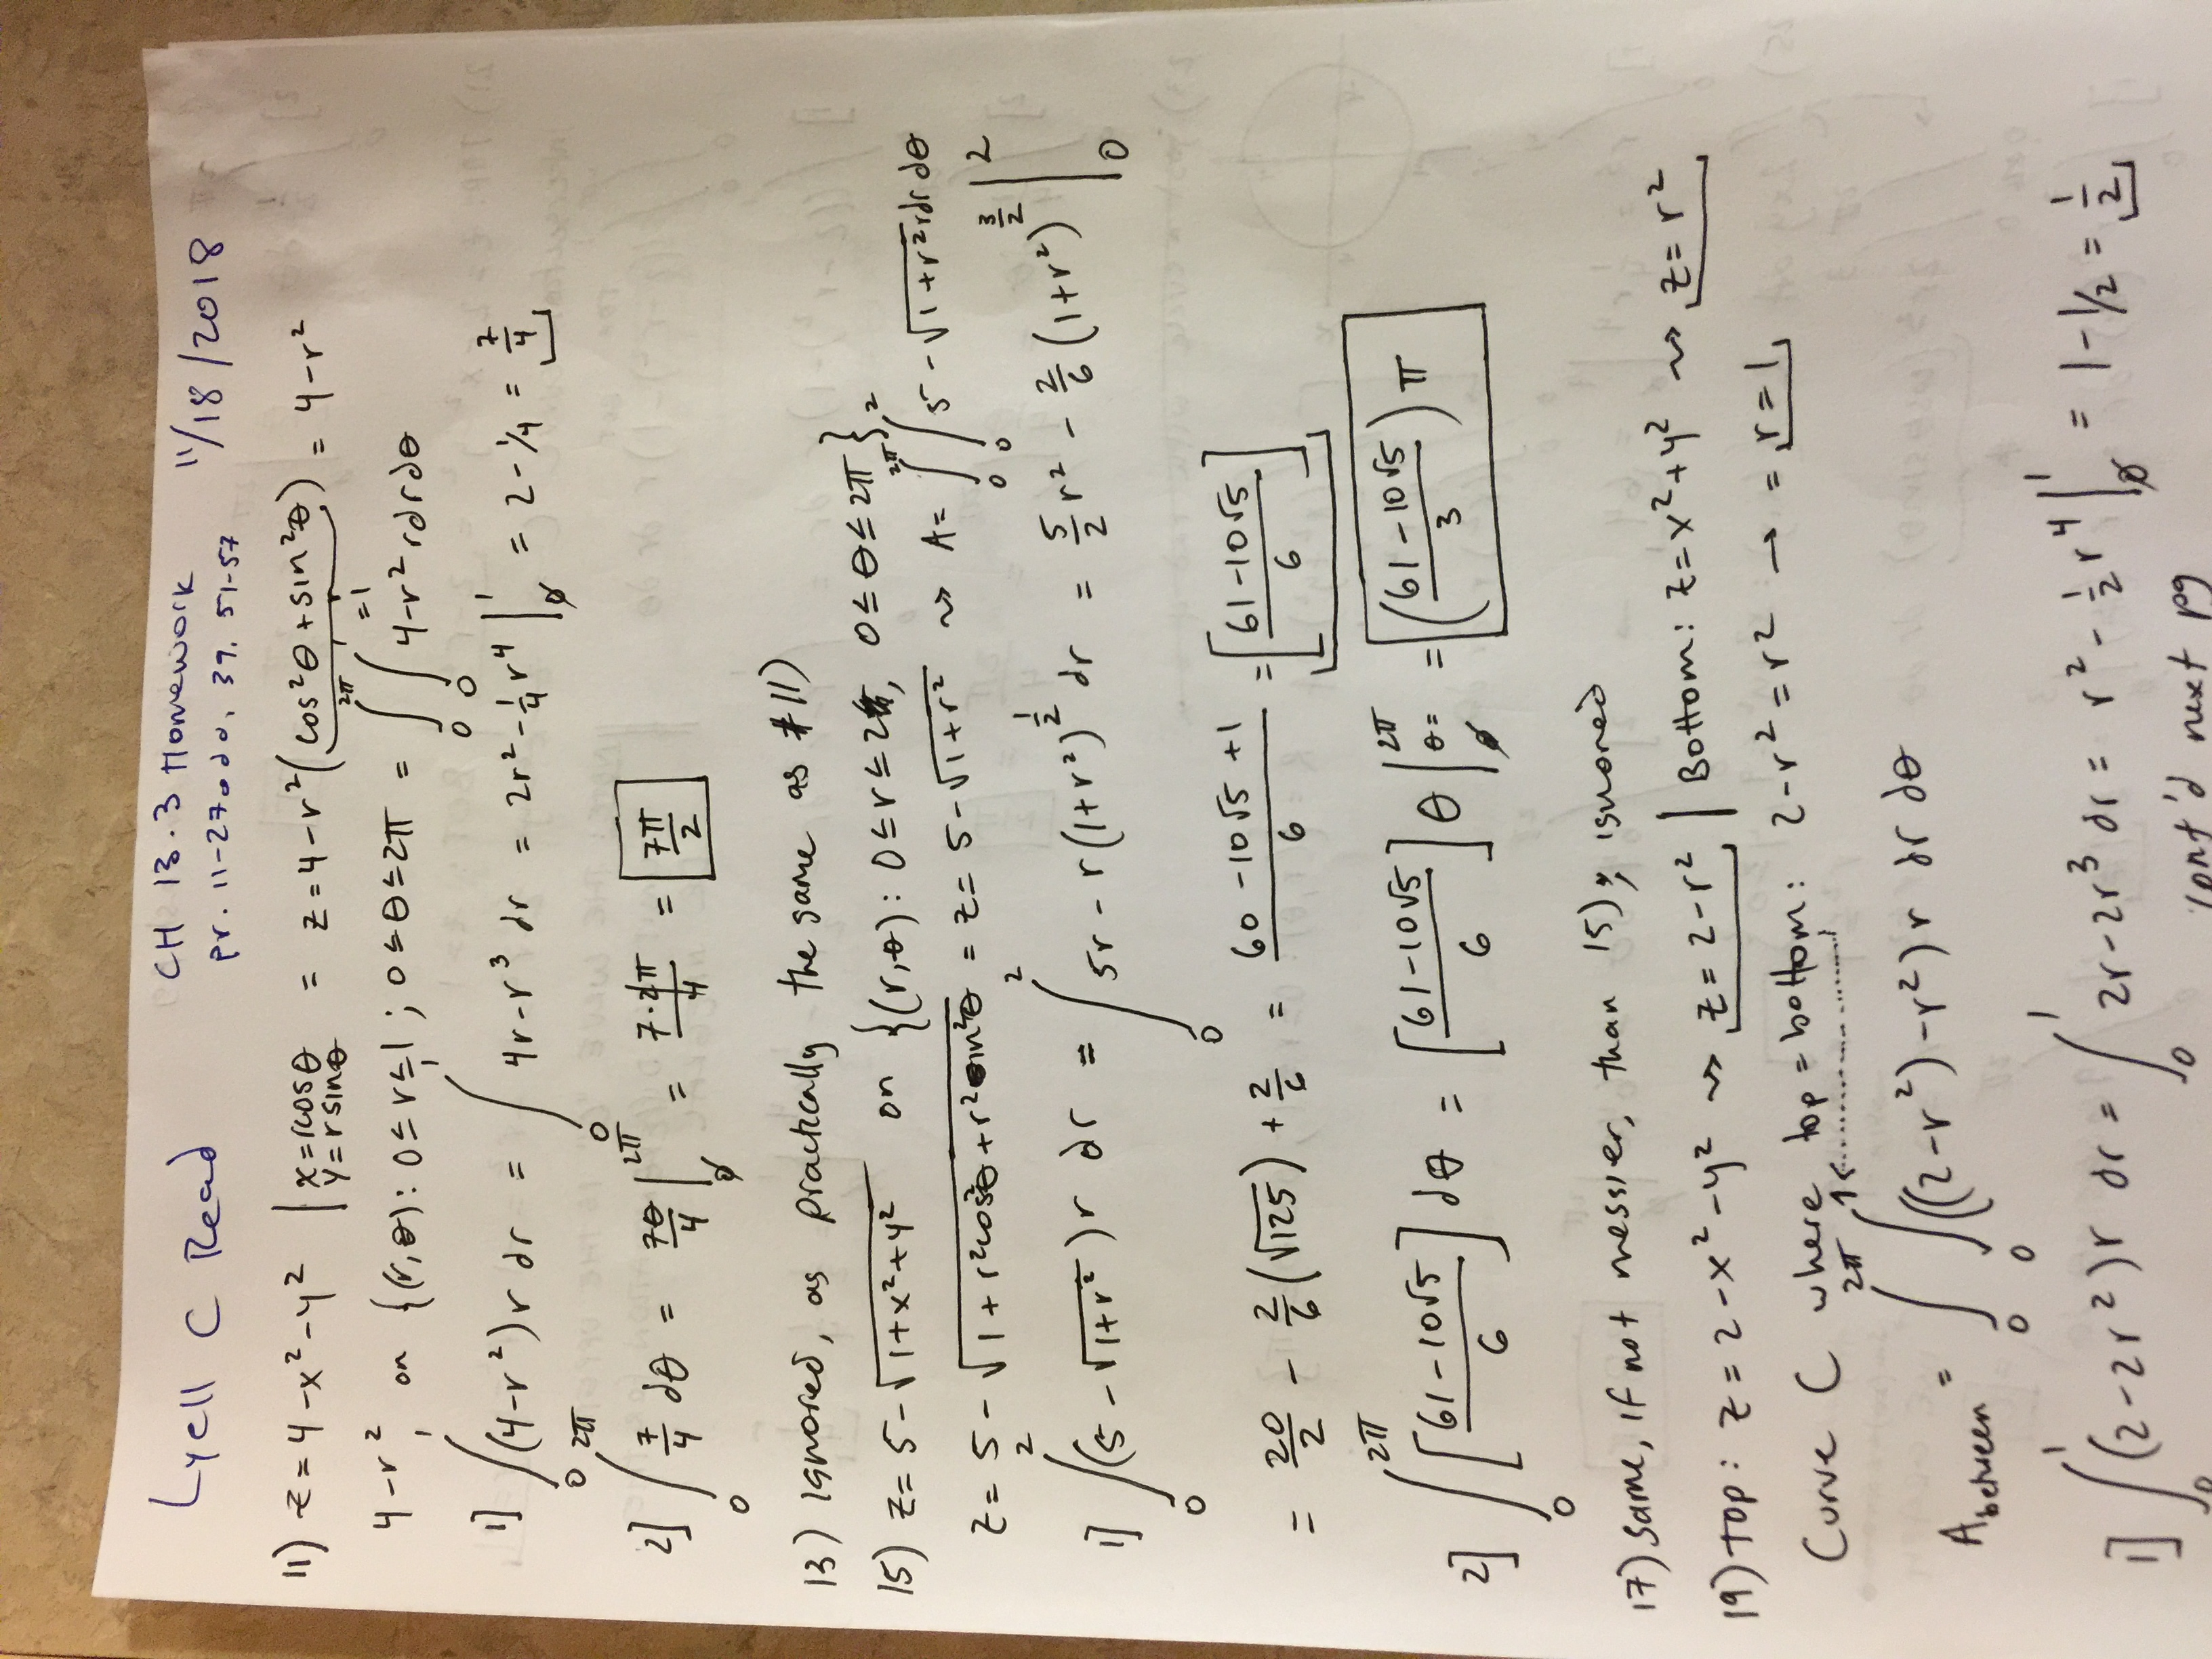 Lyell C Read
CH 13.3 Homework
pr. 11-27odd, 39, 51-57
11/18/2018
11) z = 4 - x² - y² | x = rcosθ y = r sinθ = z = 4 - r²(cos²θ + sin²θ) = 4 - r²
=1
4 - r² on {(r,θ): 0 ≤ r ≤ 1 ; 0 ≤ θ ≤ 2π = ∫₀^2π ∫₀^1 4 - r² r dr dθ
1] ∫₀^1 (4 - r²) r dr = ∫₀^1 4r - r³ dr = 2r² - 1/4 r⁴ |₀^1 = 2 - 1/4 = 7/4
2] ∫₀^2π 7/4 dθ = 7θ/4 |₀^2π = 7·2π/4 = 7π/2
13) Ignored, as practically the same as #11)
15) z = 5 - √(1 + x² + y²) on {(r,θ): 0 ≤ r ≤ 2, 0 ≤ θ ≤ 2π}
z = 5 - √(1 + r²cos²θ + r²sin²θ) = z = 5 - √(1 + r²) ⇝ A = ∫₀^2π ∫₀^2 5 - √(1 + r²) r dr dθ
1] ∫₀^2 (5 - √(1 + r²)) r dr = ∫₀^2 5r - r(1 + r²)^1/2 dr = 5/2 r² - 2/6 (1 + r²)^3/2 |₀^2
= 20/2 - 2/6 (√125) + 2/6 = (60 - 10√5 + 1)/6 = [(61 - 10√5)/6]
2] ∫₀^2π [(61 - 10√5)/6] dθ = [(61 - 10√5)/6] θ |θ=0^2π = ((61 - 10√5)/3) π
17) Same, if not messier, than 15); ignored
19) top: z = 2 - x² - y² ⇝ z = 2 - r² | Bottom: z = x² + y² ⇝ z = r²
Curve C where top = bottom: 2 - r² = r² → = r = 1
A between = ∫₀^2π ∫₀^1 ((2 - r²) - r²) r dr dθ
1] ∫₀^1 (2 - 2r²) r dr = ∫₀^1 2r - 2r³ dr = r² - 1/2 r⁴ |₀^1 = 1 - 1/2 = 1/2
cont'd next pg